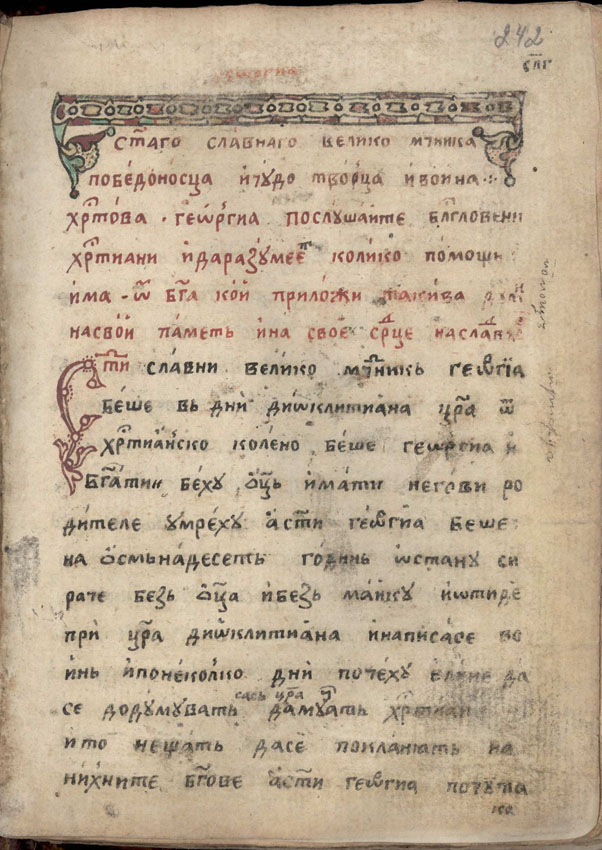 242
спг
геѡргиа
ст҃аго славнаго велико мч҃ника
победоносца и чудо творца и воина
хрⷭ҇това · геѡ́ргиа послушаите блгⷭ҇ловени
хрⷭ҇тиани и да разумеетⷭ коли́ко помощи
има · ѿ бг҃а кой приложи такива
на свой паметь и на свое срⷣце
ст҃и славни велико мч҃никь геѡ́ргїа
беше вь дни диѡклитиана цр҃а ѿ
хрⷭ҇тиѧнско колено беше геѡргиа и
бг҃ати беху ѻц҃ь и мати негови ро
дителе умреху а ст҃и геѡргиа беше
на ѻсмьнадесеть годинь ѡстану си
раче безь ѻц҃а и безь маику и ѡтиде
при цр҃а диѡклитиана и написасе во
инь и понеколко дни почеху елине да
сась цр҃а
се додумувать да мучать хрⷭ҇тиани
що нещать да се покланать на
нихните бг҃ове а ст҃и геѡргиа почуѧ
ка